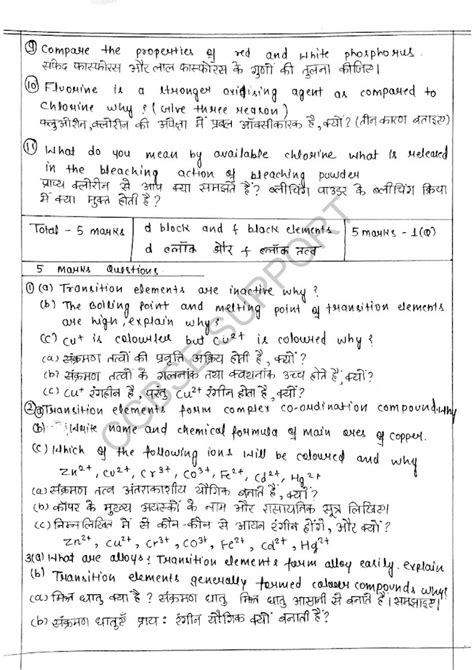 ⑨ Compare the properties of red and white phosphorus.
सफेद फास्फोरस और लाल फास्फोरस के गुणों की तुलना कीजिए।
⑩ Fluorine is a stronger oxidising agent as compared to
chlorine why? (Give three reason)
फ्लुओरीन, क्लोरीन की अपेक्षा में प्रबल ऑक्सीकारक है, क्यों? (तीन कारण बताइए)
⑪ What do you mean by available chlorine what is released
in the bleaching action of bleaching powder
प्राप्य क्लोरीन से आप क्या समझते हैं? ब्लीचिंग पाउडर के ब्लीचिंग क्रिया
में क्या मुक्त होती है?
Total - 5 marks d block and f block elements 5 marks - 1(Q)
d ब्लॉक और f ब्लॉक तत्व
5 marks Questions
① (a) Transition elements are inactive why?
(b) The Boiling point and melting point of transition elements
are high, explain why?
(c) Cu+ is colourless but Cu2+ is coloured why?
(a) संक्रमण तत्वों की प्रवृति अक्रिय होती है, क्यों?
(b) संक्रमण तत्वों के गलनांक तथा क्वथनांक उच्च होते हैं, क्यों?
(c) Cu+ रंगहीन है, परंतु Cu2+ रंगीन होता है, क्यों?
② (a) Transition elements form complex co-ordination compound why
(b) Write name and chemical formula of main ores of copper.
(c) Which of the following ions will be coloured and why
Zn2+, Cu2+, Cr3+, CO3+, Fe2+, Cd2+, Hg2+
(a) संक्रमण तत्व अंतराकाशीय यौगिक बनाते हैं, क्यों?
(b) कॉपर के मुख्य अयस्कों के नाम और रासायनिक सूत्र लिखिए।
(c) निम्नलिखित में से कौन-कौन से आयन रंगीन होंगे, और क्यों?
Zn2+, Cu2+, Cr3+, CO3+, Fe2+, Cd2+, Hg2+
3(a) What are alloys? Transition elements form alloy easily. explain
(b) Transition elements generally formed colour compounds why?
(a) मिश्र धातु क्या है? संक्रमण धातु मिश्र धातु आसानी से बनाते हैं। समझाइए।
(b) संक्रमण धातुएँ प्रायः रंगीन यौगिक क्यों बनाती हैं?
CGBSE SUPPORT